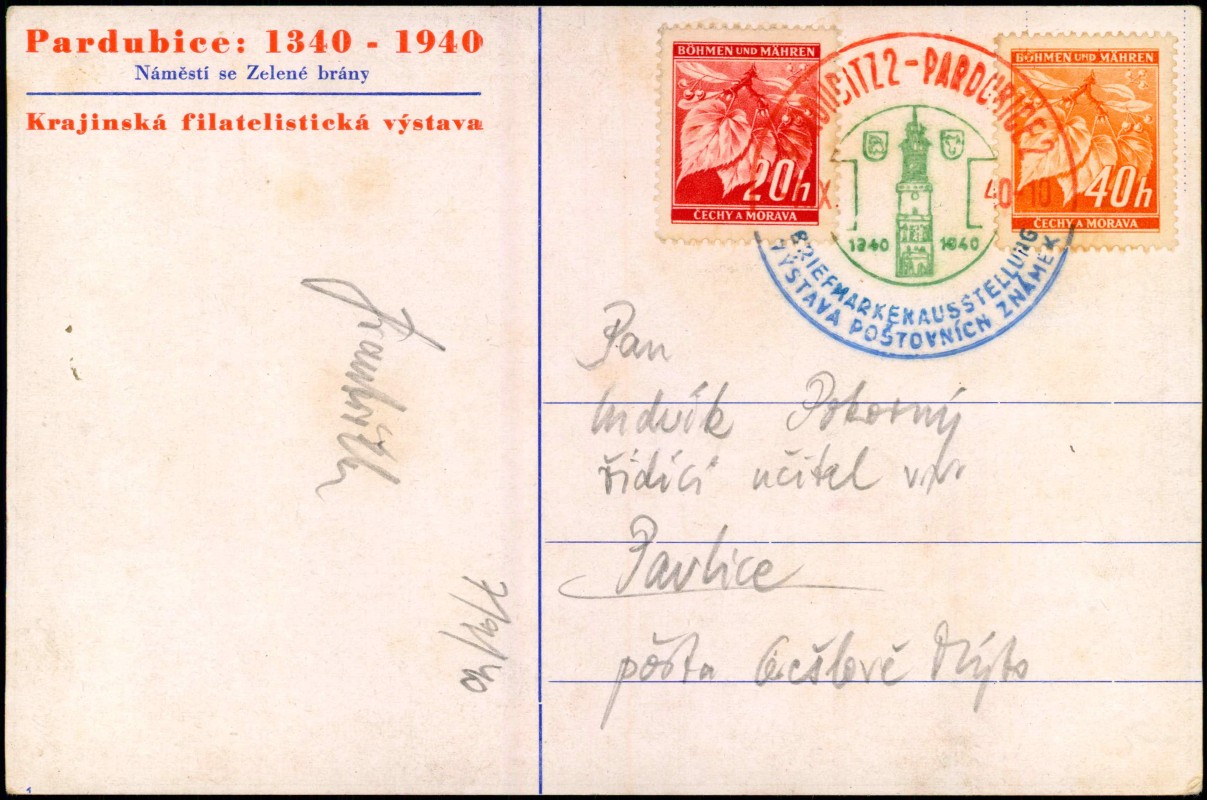 Pardubice: 1340 - 1940
Náměstí se Zelené brány
Krajinská filatelistická výstava
BÖHMEN UND MÄHREN
20h
ČECHY A MORAVA
BÖHMEN UND MÄHREN
40h
ČECHY A MORAVA
2-PARDUBICE 2
X. 40-10
1340 1940
BRIEFMARKENAUSSTELLUNG
VÝSTAVA POŠTOVNÍCH ZNÁMEK
Pan
Ludvík Pokorný
řídící učitel v.v.
Pavlice
pošta Mýto
1